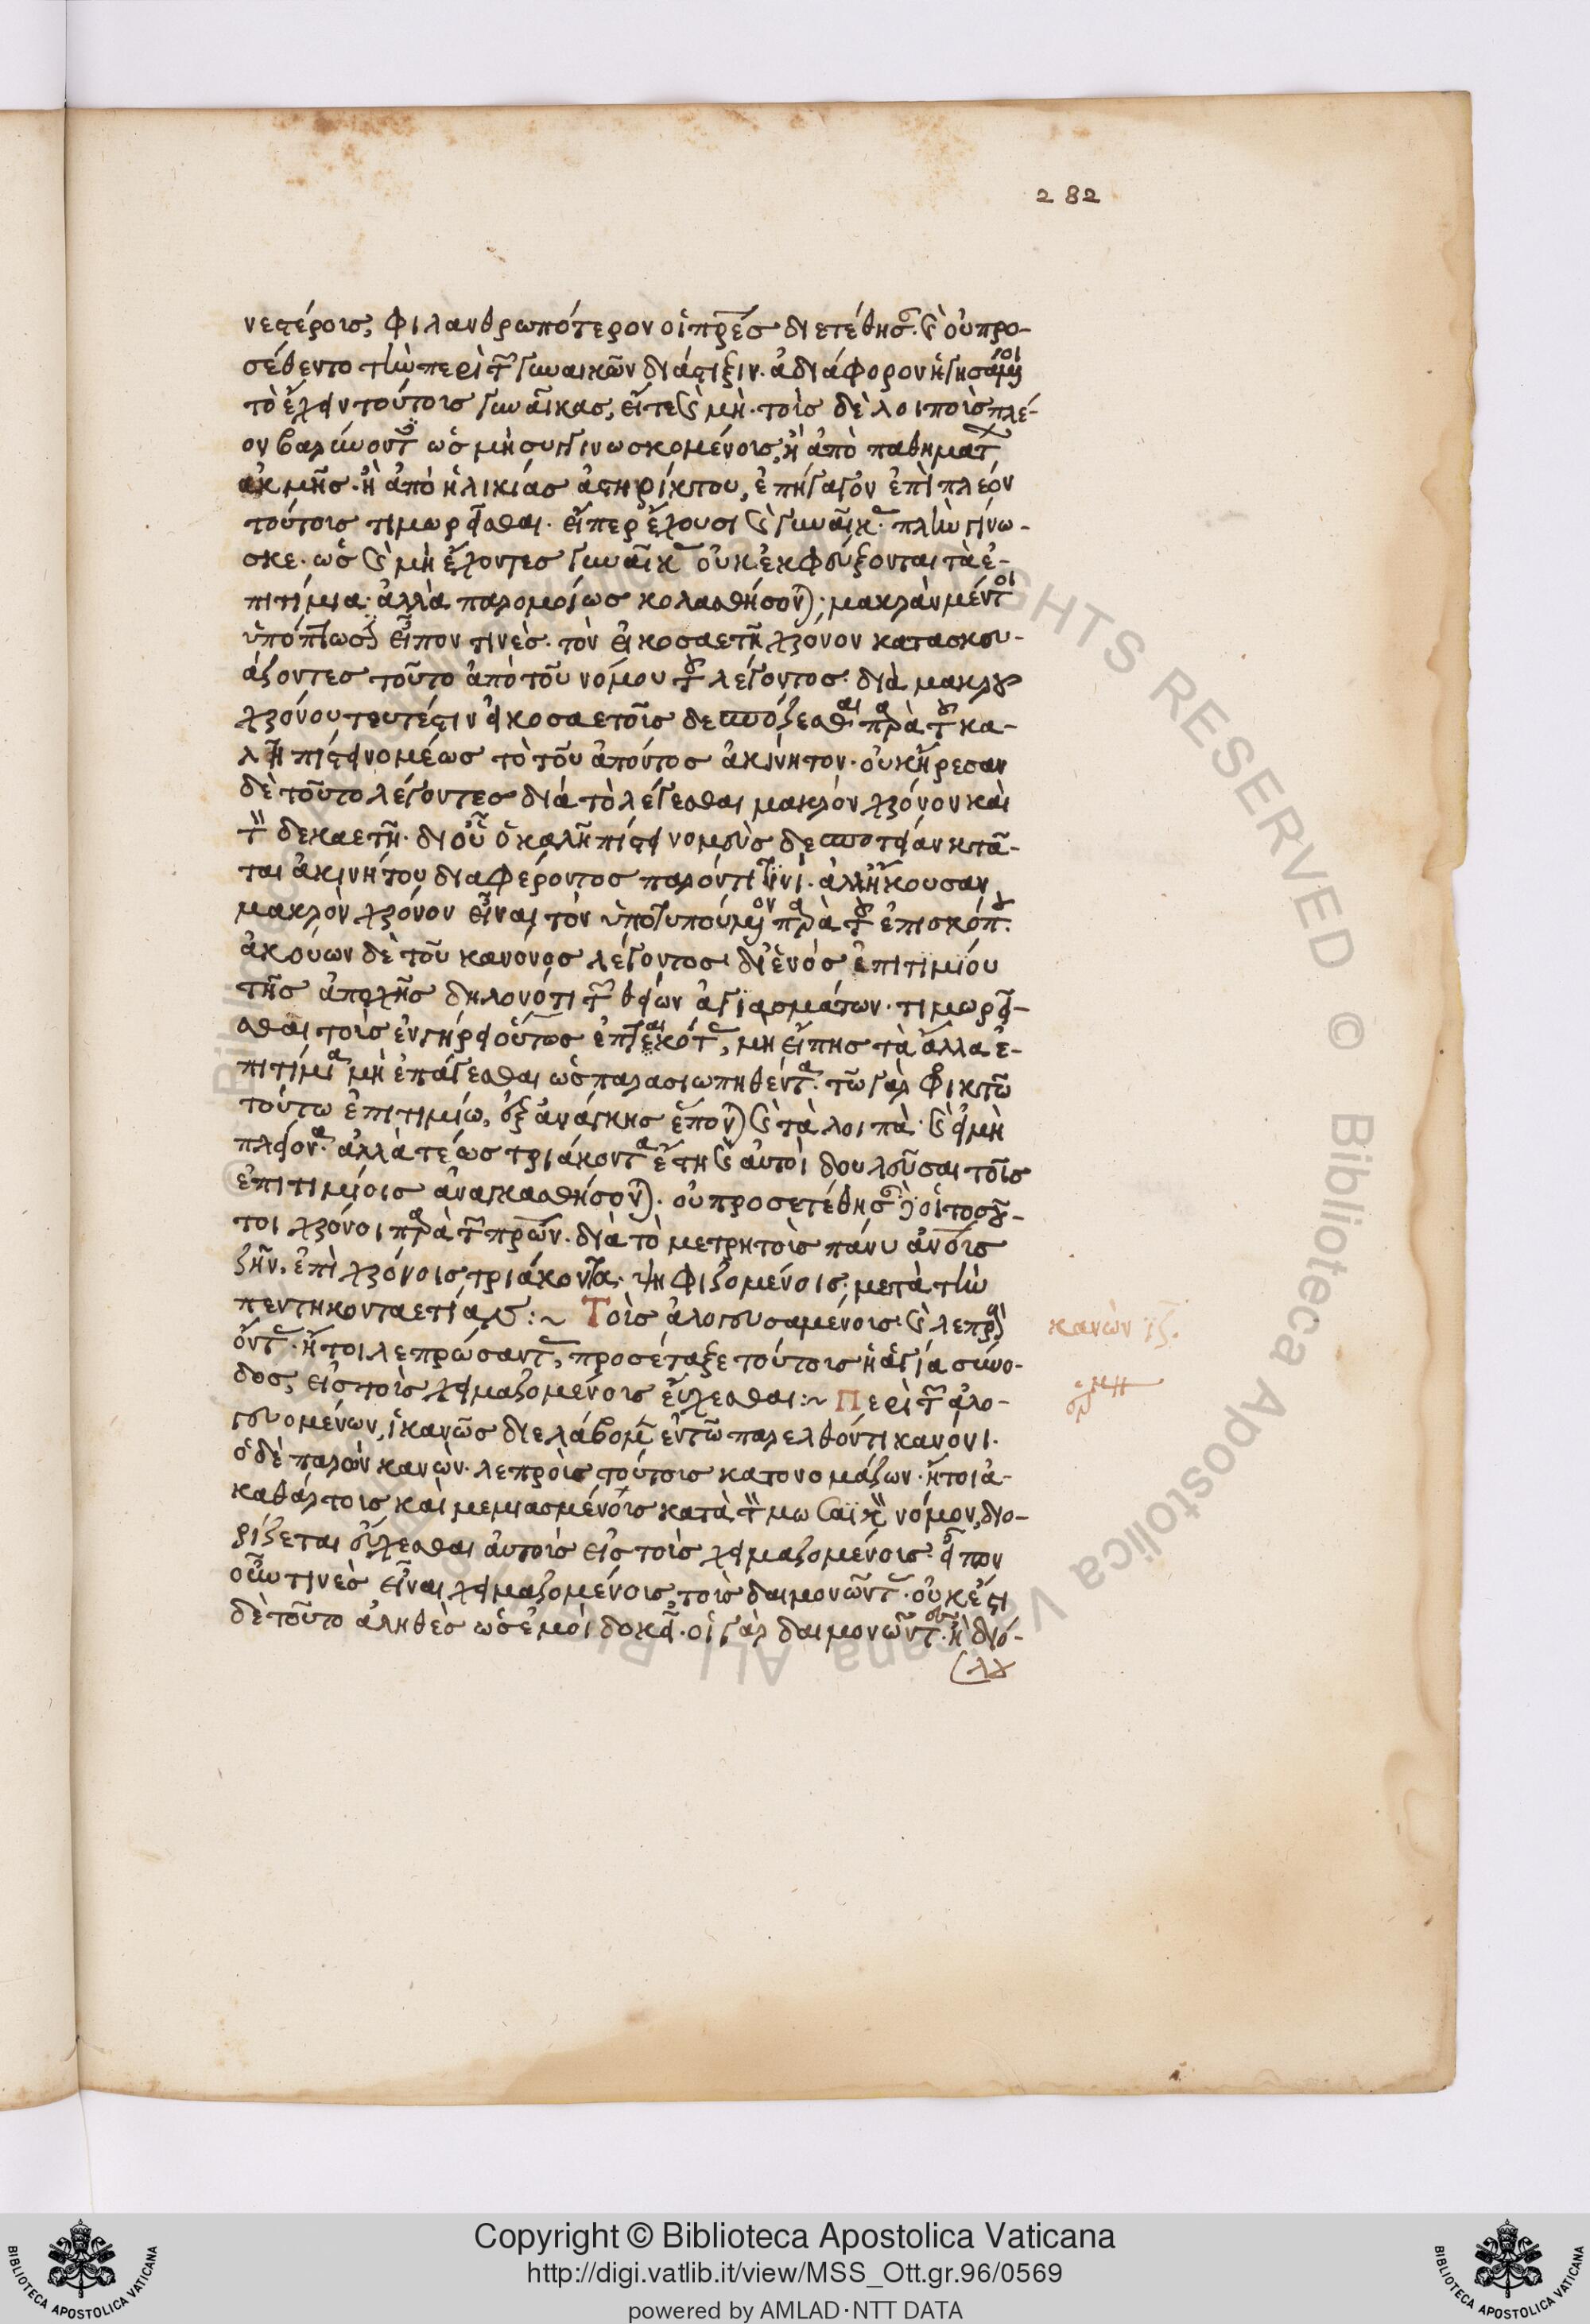 282
νεωτέροις, φιλανθρωπότερον οἱ πρες διετέθησαν. καὶ οὐ προ-
σέθεντο τὴν περὶ τῶν γυναικῶν διάστιξιν. ἀδιάφορον ἡγησάμενοι
τὸ ἔχειν τούτοις γυναῖκας, εἴτε καὶ μή. τοῖς δὲ λοιποῖς πλέ-
ον βαρύνοντες ὡς μὴ συγγινωσκομένοις, ἢ ἀπὸ παθημάτων
ἀκμῆς. ἢ ἀπὸ ἡλικίας ἀστηρίκτου, ἐπήγαγον ἐπὶ πλέον
τούτοις τιμωρεῖσθαι. εἴπερ ἔχουσι καὶ γυναῖκας. πλὴν γίνω-
σκε. ὡς καὶ μὴ ἔχοντες γυναῖκας οὐκ ἐκφεύξονται τὰ ἐ-
πιτίμια. ἀλλὰ παρομοίως κολασθήσονται. μακρὰν μέντοι
ὑπόπτωσιν εἶπον τινές. τὸν εἰκοσαετῆ χρόνον κατασκευ-
άζοντες τοῦτο ἀπὸ τοῦ νόμου τοῦ λέγοντος. διὰ μακροῦ
χρόνου τουτέστιν εἰκοσαετοῦς δεσπόζεσθαι παρὰ τοῦ κα-
λῇ πίστει νομέως τὸ τοῦ ἀπόντος ἀκίνητον. οὐκ ἤρεσαν
δὲ τοῦτο λέγοντες διὰ τὸ λέγεσθαι μακρὸν χρόνον καὶ
τὸν δεκαετῆ. δι οὗ ὁ καλῇ πίστει νομεὺς δεσποτείαν κτᾶ-
ται ἀκινήτου διαφέροντος παρόντι τινί. ἀλλ ἤκουσαν
μακρὸν χρόνον εἶναι τὸν ὑποτυπούμενον παρὰ τοῦ ἐπισκόπου.
ἀκούων δὲ τοῦ κανόνος λέγοντος δι ἑνὸς ἐπιτιμίου
τῆς ἀποχῆς δηλονότι τῶν θείων ἁγιασμάτων. τιμωρεῖ-
σθαι τοὺς ἐν γήρει οὕτως ἐπταικότας, μὴ εἴπῃς τὰ ἄλλα ἐ-
πιτίμια μὴ ἐπάγεσθαι ὡς παρασιωπηθέντα. τῷ γὰρ φρικτῷ
τούτῳ ἐπιτιμίῳ, ἐξ ἀνάγκης ἕπονται καὶ τὰ λοιπά. καὶ εἰ μὴ
πλείονα. ἀλλὰ τέως τριάκοντα ἔτη καὶ αὐτοὶ δουλεῦσαι τοῖς
ἐπιτιμίοις ἀναγκασθήσονται. οὐ προσετέθησαν δὲ οἱ τοσοῦ-
τοι χρόνοι παρὰ τῶν πρων. διὰ τὸ μετρητοῖς πάνυ ανοις
ζῆν. ἐπὶ χρόνοις τριάκοντα. ψηφιζομένοις. μετὰ τὴν
πεντηκονταετίαν :~ Τοὺς ἀλογευσαμένους καὶ λεπροὺς
κανὼν ιζ.
ὄντας. ἤτοι λεπρώσαντας, προσέταξε τούτους ἡ ἁγία σύνο-
δος, εἰς τοὺς χειμαζομένους εὔχεσθαι :~ Περὶ τῶν ἀλο-
ερμη
γευομένων, ἱκανῶς διελάβομεν ἐν τῷ παρελθόντι κανόνι.
ὁ δὲ παρὼν κανών. λεπροὺς τούτους κατονομάζων. ἤτοι ἀ-
καθάρτους καὶ μεμιασμένους κατὰ τὸν μωσαϊκὸν νόμον, διο-
ρίζεται εὔχεσθαι αὐτοὺς εἰς τοὺς χειμαζομένους. εἶπον
οὖν τινὲς εἶναι χειμαζομένους, τοὺς δαιμονῶντας. οὐκ ἔστι
δὲ τοῦτο ἀληθὲς ὡς ἐμοὶ δοκεῖ. οἱ γὰρ δαιμονῶντες. ἢ διό-
λου
Copyright © Biblioteca Apostolica Vaticana
http://digi.vatlib.it/view/MSS_Ott.gr.96/0569
powered by AMLAD·NTT DATA